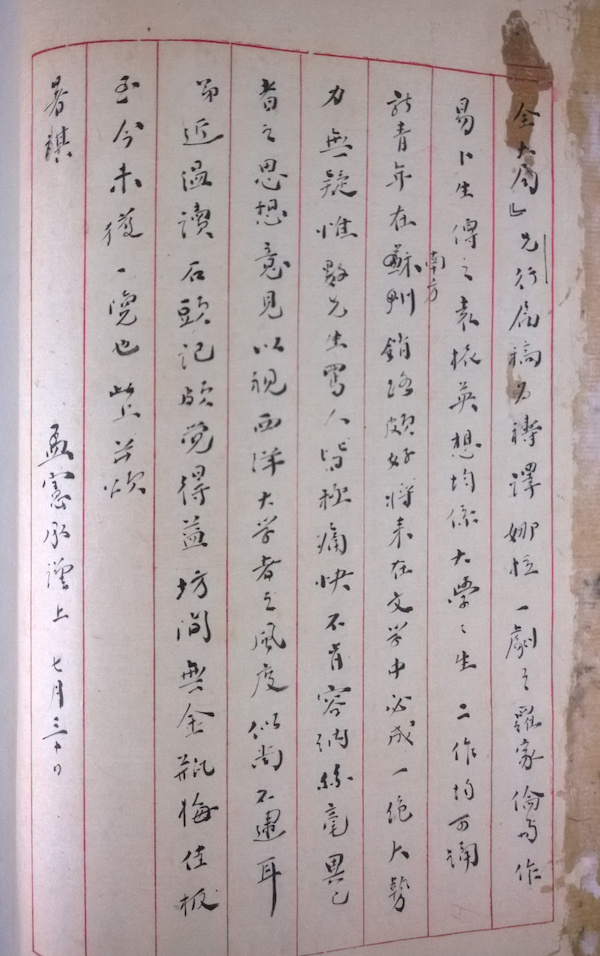 全大局」先行屬稿為禱譯娜拉一劇之羅家倫與作
易卜生傳之袁振英想均係大學之生二作均可誦
新青年在蘇州銷路頗好將来在文学中必成一绝大勢
南方
力無疑惟數先生罵人皆称痛快不肯容納絲毫異己
者之思想意見以視西洋大学者之風度似尚不逮耳
弟近温讀石頭記頗覺得益坊间無金瓶梅佳板
至今未獲一覽也此上並頌
暑祺
孟憲承謹上 七月三十日